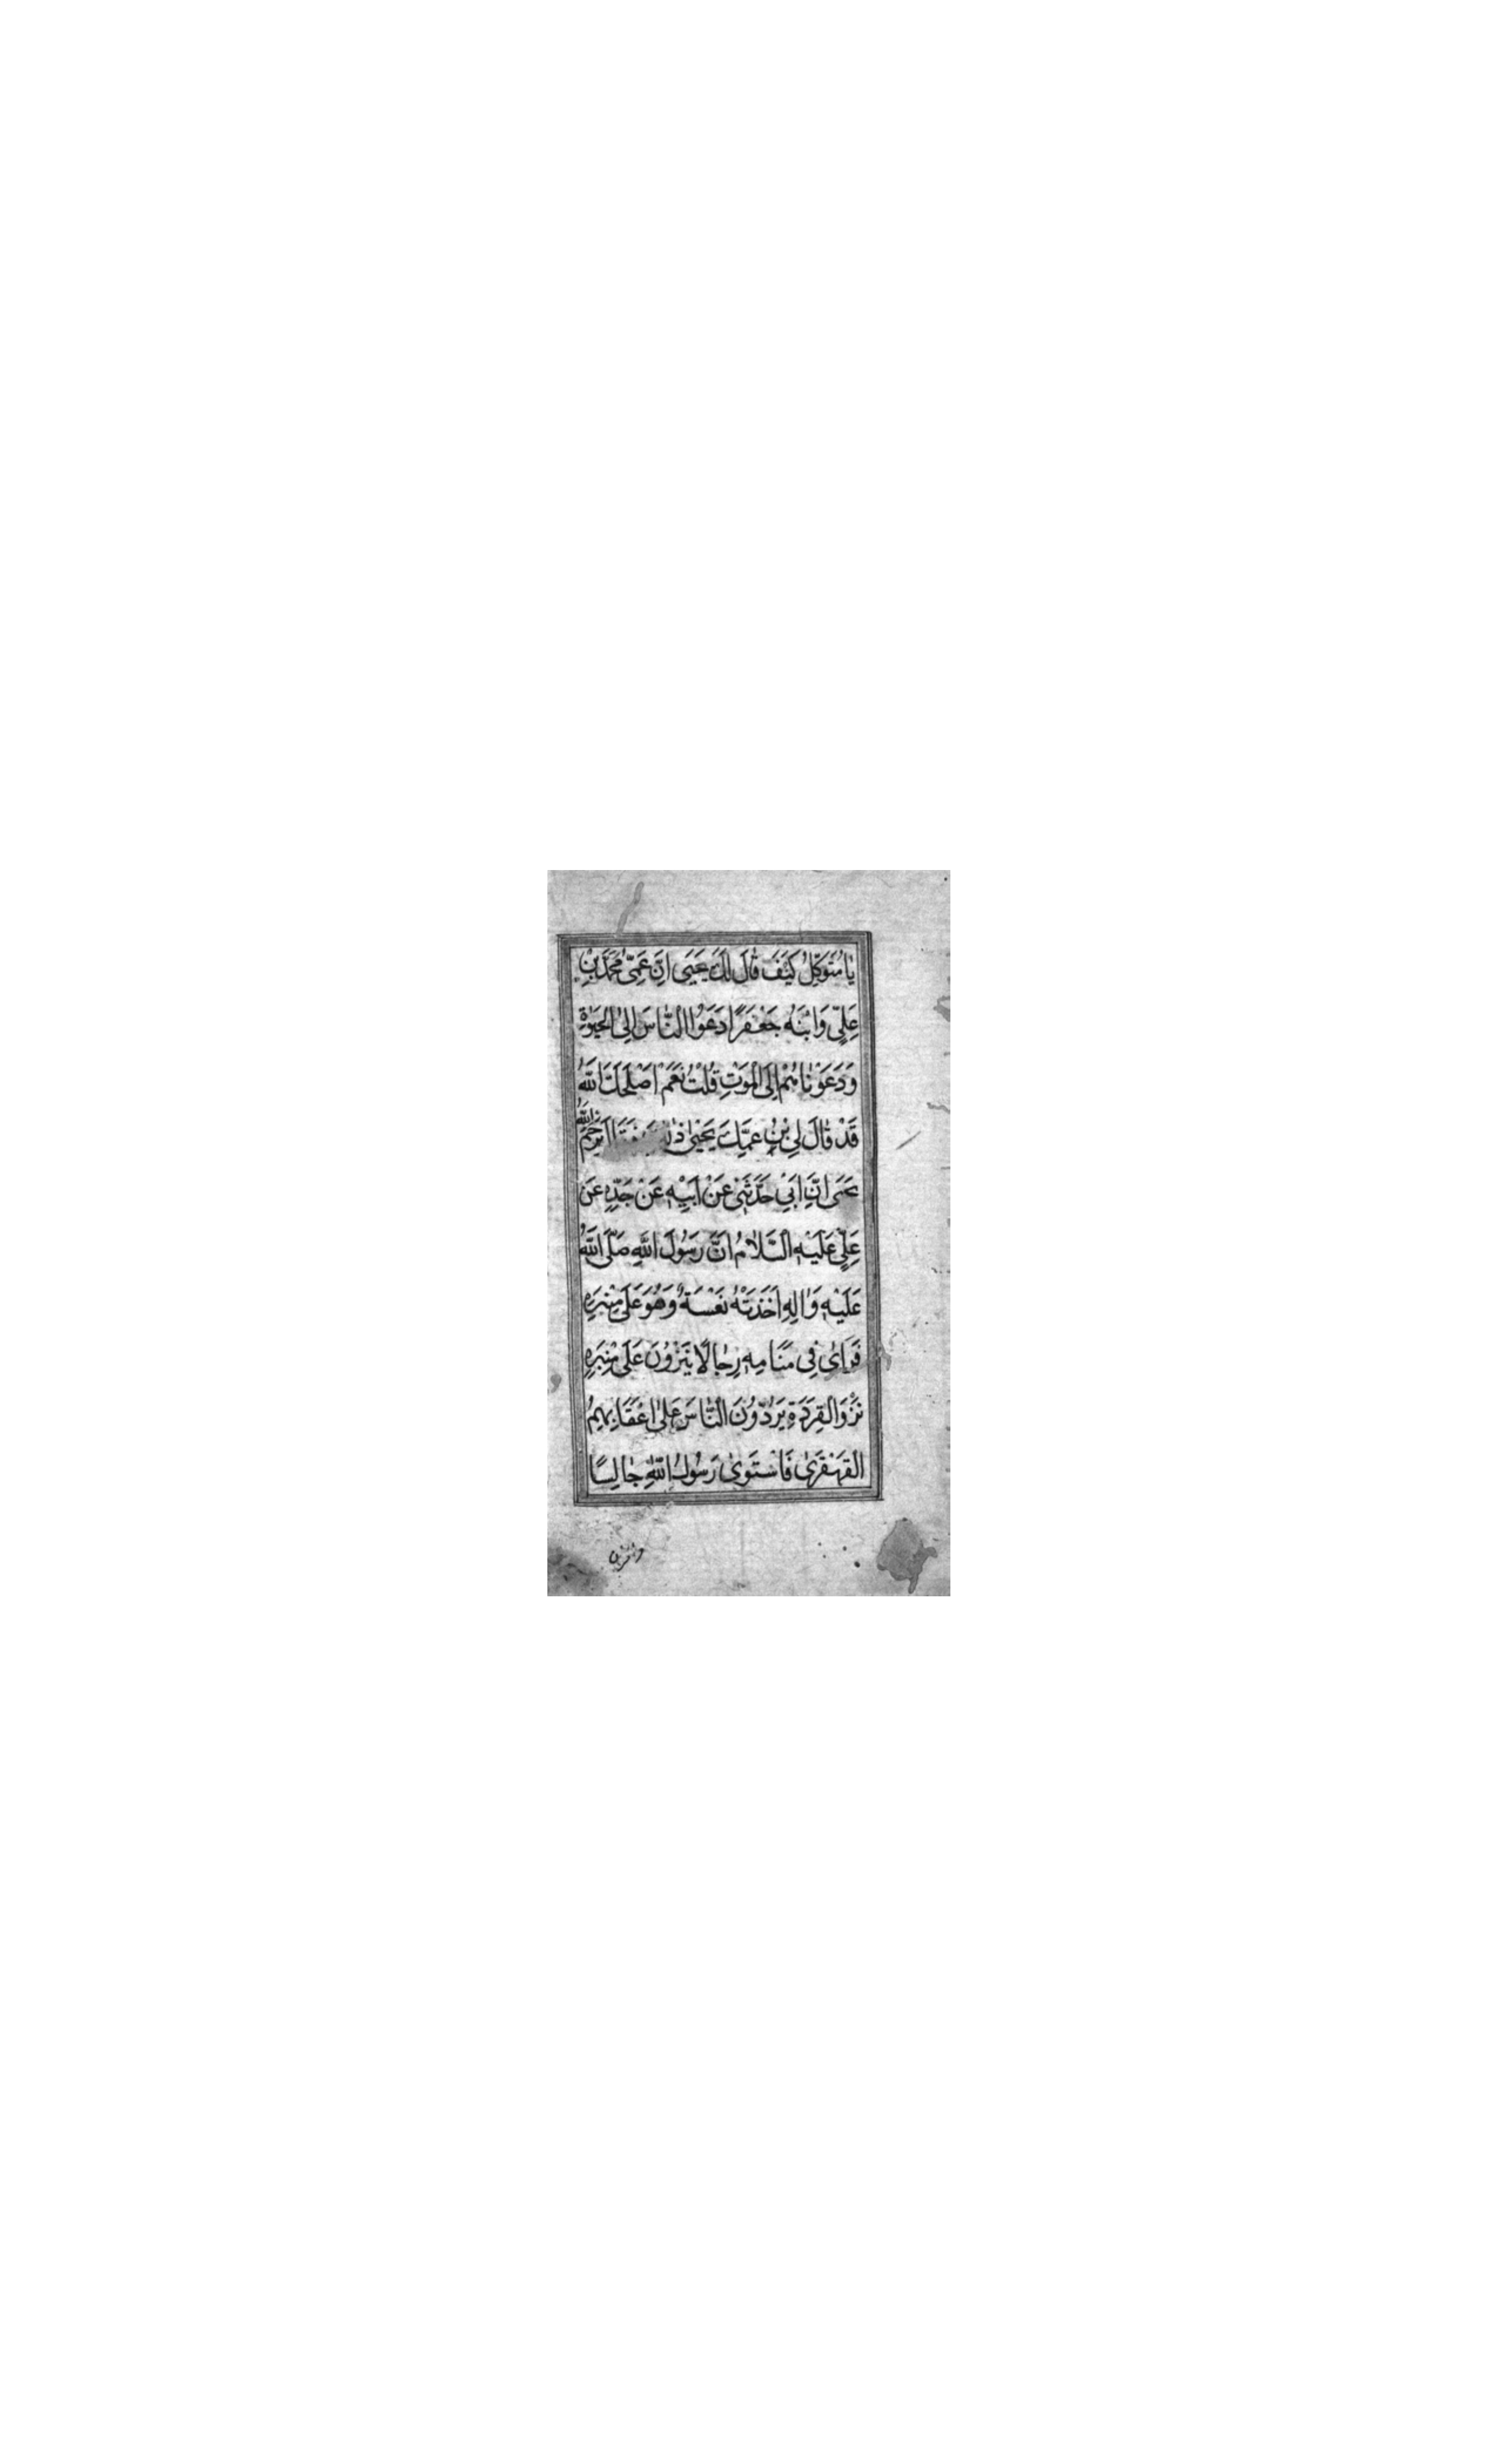 يَا مُتَوَكِّلُ كَيْفَ قَالَ لَكَ يَحْيَى اِنَّ عَمِّي مُحَمَّدَ بْنَ
عَلِيٍّ وَابْنَهُ جَعْفَرًا دَعَوَا النَّاسَ اِلَى الْحَيٰوةِ
وَدَعَوْنَاهُمْ اِلَى الْمَوْتِ قُلْتُ نَعَمْ اَصْلَحَكَ اللّٰهُ
قَدْ قَالَ لِي بْنُ عَمِّكَ يَحْيىٰ فَقَالَ يَرْحَمُ اللّٰهُ
يَحْيَى اِنَّ اَبِي حَدَّثَنِي عَنْ اَبِيهِ عَنْ جَدِّهِ عَنْ
عَلِيٍّ عَلَيْهِ السَّلَامُ اَنَّ رَسُولَ اللّٰهِ صَلَّى اللّٰهُ
عَلَيْهِ وَاٰلِهِ اَخَذَتْهُ نَعْسَةٌ وَهُوَ عَلَى مِنْبَرِهِ
فَرَاٰى فِي مَنَامِهِ رِجَالًا يَنْزُونَ عَلَى مِنْبَرِهِ
نَزْوَ الْقِرَدَةِ يَرُدُّونَ النَّاسَ عَلىٰ اَعْقَابِهِمُ
الْقَهْقَرىٰ فَاسْتَوىٰ رَسُولُ اللّٰهِ جَالِسًا